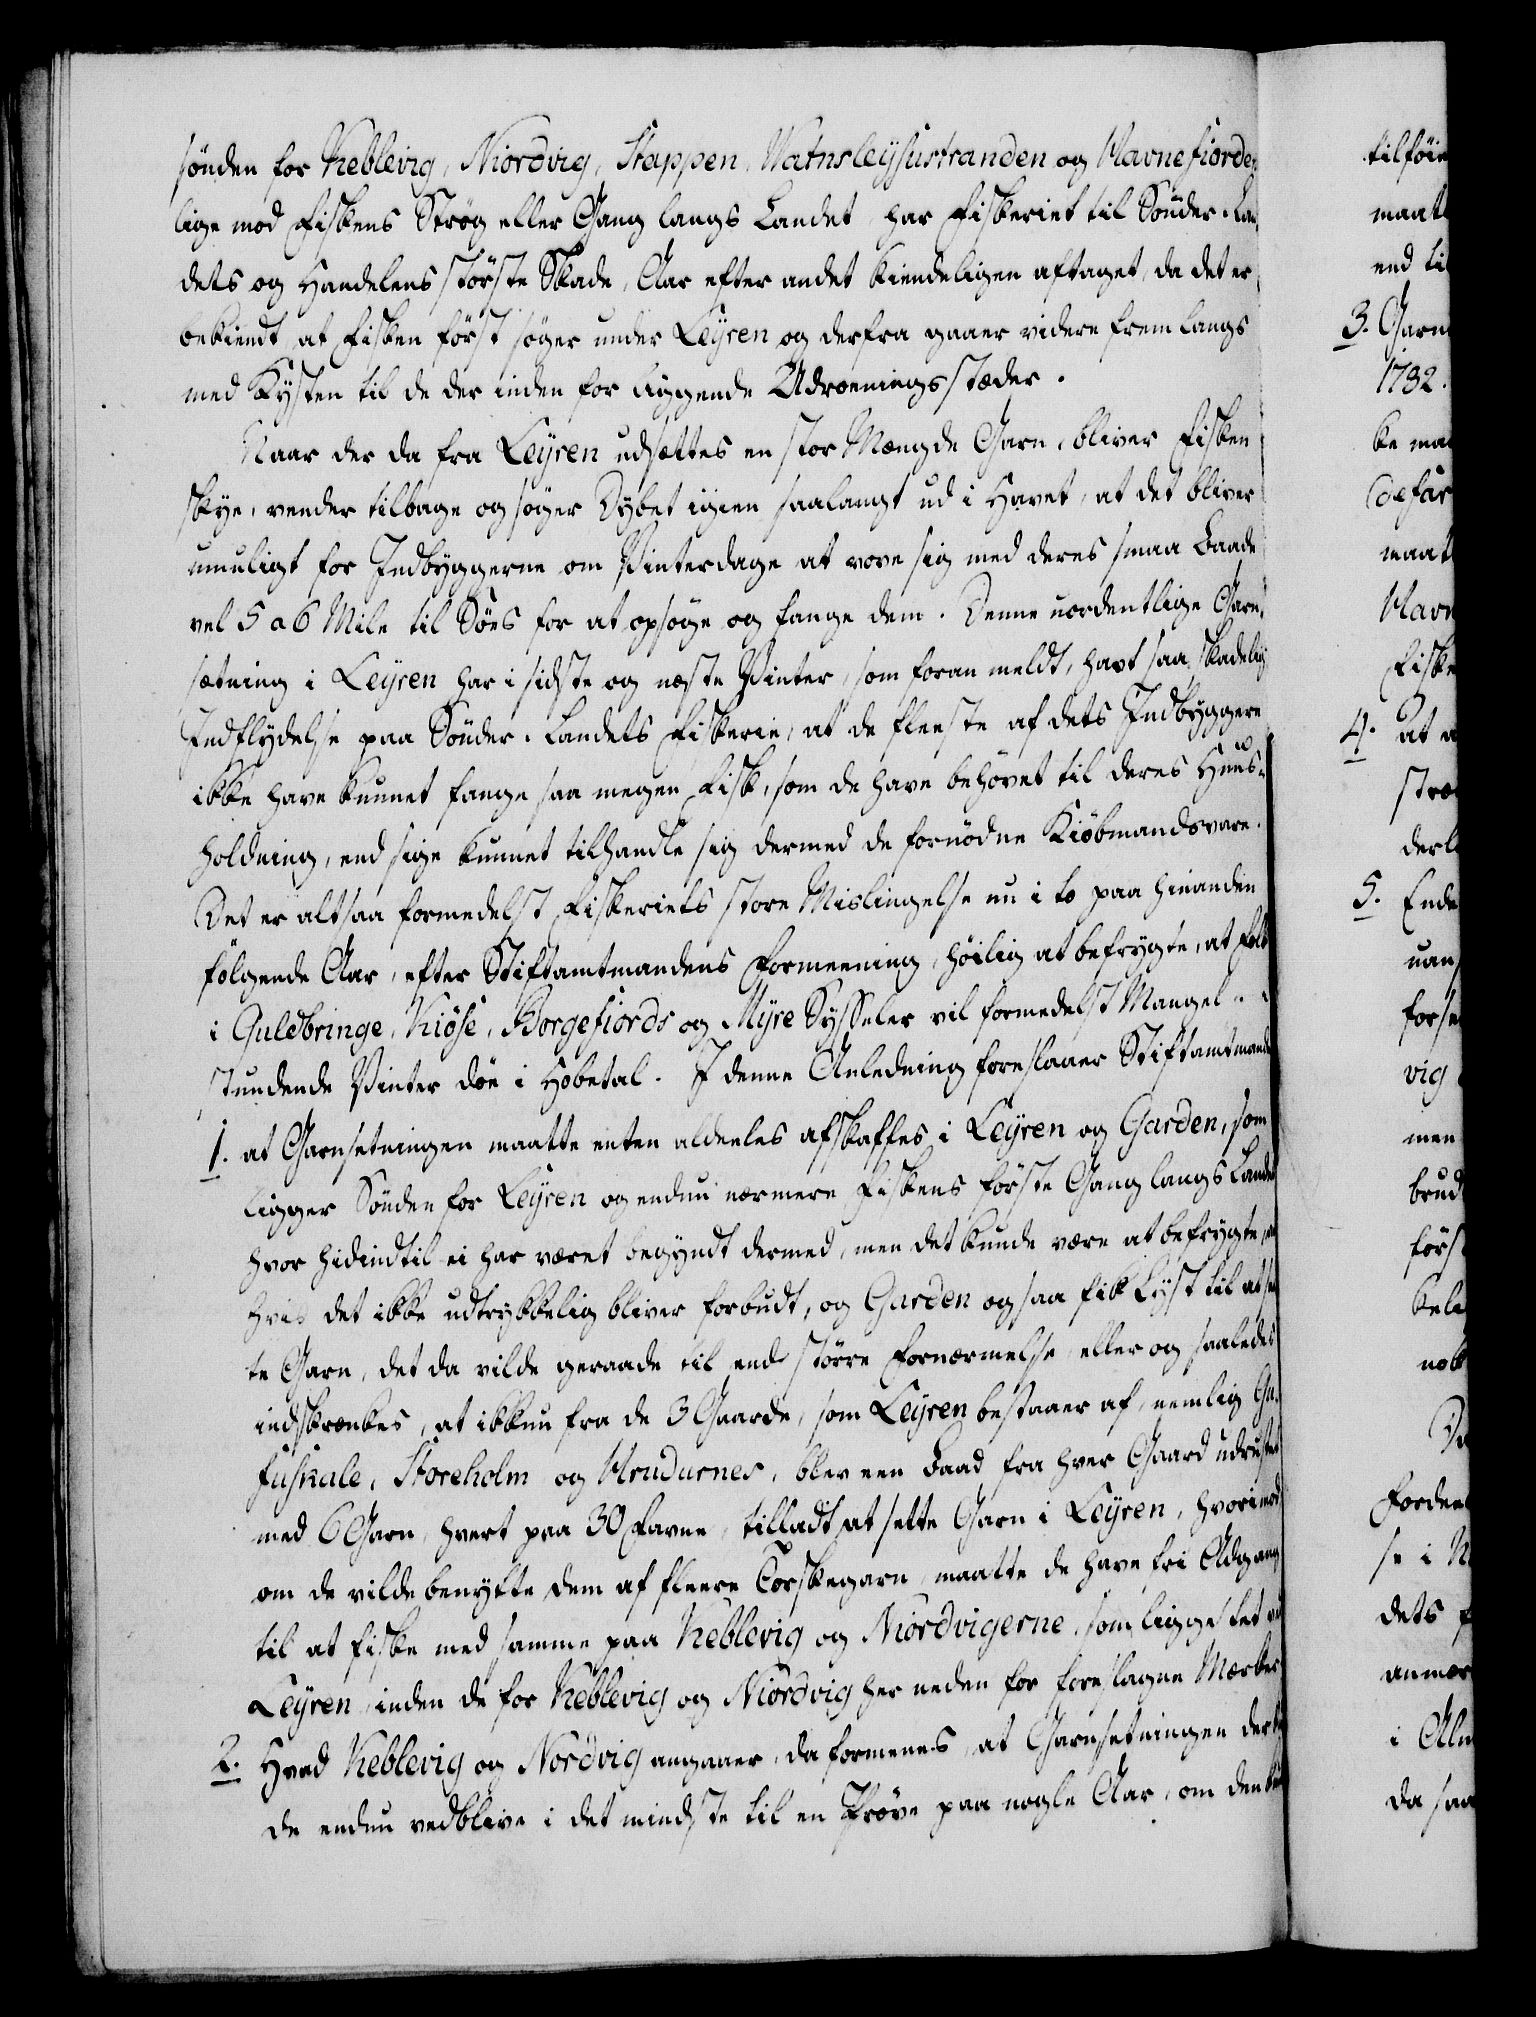 sönden for Keblevig, Niordvig, Stappen, Watnsleysustranden og Havnefiorden
lige mod Fiskens Strøg eller Gang langs Landet, har Fiskeriet til Sönder-Lan-
dets og Handelens störste Skade, Aar efter andet kiendeligen aftaget, da det er
bekiendt, at Fisken först söger under Leyren og derfra gaaer videre frem langs
med Kysten til de der inden for liggende Udroeningsstæder.
Naar der da fra Leyren udsættes en stor Mængde Garn, bliver Fisken
skye, vender tilbage og söger Dybet igien saalangt ud i Havet, at det bliver
umuligt for Indbyggerne om Vinterdage at vove sig med deres smaa Baade
vel 5 a 6 Mile til Söes for at opsøge og fange dem. Denne uordentlige Garn-
sætning i Leyren har i sidste og næste Vinter, som foran meldt, havt saa skadelig
Indflydelse paa Sönder-Landets Fiskerie, at de fleeste af dets Indbyggere
ikke have kunnet fange saa megen Fisk, som de have behövet til deres Huus-
holdning, end sige kunnet tilhandle sig dermed de fornödne Kiöbmandsvare.
Det er altsaa formedelst Fiskeriets store Mislingelse nu i to paa hinanden
fölgende Aar, efter Stiftamtmandens Formeening, höilig at befrygte, at Folk
i Guldbringe, Kiöse, Borgefiords og Myre Sysseler vil formedelst Mangel
stundende Vinter döe i Hobetal. I denne Anledning foreslaaer Stiftamtmanden
1. at Garnsetningen maatte enten aldeeles afskaffes i Leyren og Garden, som
ligger Sönden for Leyren og endnu nærmere Fiskens förste Gang langs Landet
hvor hidindtil ei har været begyndt dermed, men det kunde være at befrygte,
hvis det ikke udtrykkelig bliver forbudt, og Garden ogsaa fik Lyst til at sæt-
te Garn, det da vilde geraade til end större Fornærmelse, eller og saaledes
indskrænkes, at ikkun fra de 3 Gaarde, som Leyren bestaaer af, nemlig Ga-
fuskale, Storeholm og Hrudurnes, blev een Baad fra hver Gaard udrustet
med 6 Garn, hvert paa 30 Favne, tilladt at sette Garn i Leyren, hvorimod
om de vilde benytte dem af fleere Torskegarn, maatte de have fri Adgang
til at fiske med samme paa Keblevig og Niordvigerne, som ligge tet ved
Leyren, inden de for Keblevig og Niordvig her neden for foreslagne Mærker
2. Hvad Keblevig og Nordvig angaaer, da formenes, at Garnsetningen der
de endnu vedblive i det mindste til en Pröve paa nogle Aar, om den
tilföie
maat
end til
3. Garn
1782.
ke ma
maat
Havn
Fiske
4. at a
5. Ende
forse
vig
men
brud
förs
nok
Forden
se i
dets
i Alm
da saa